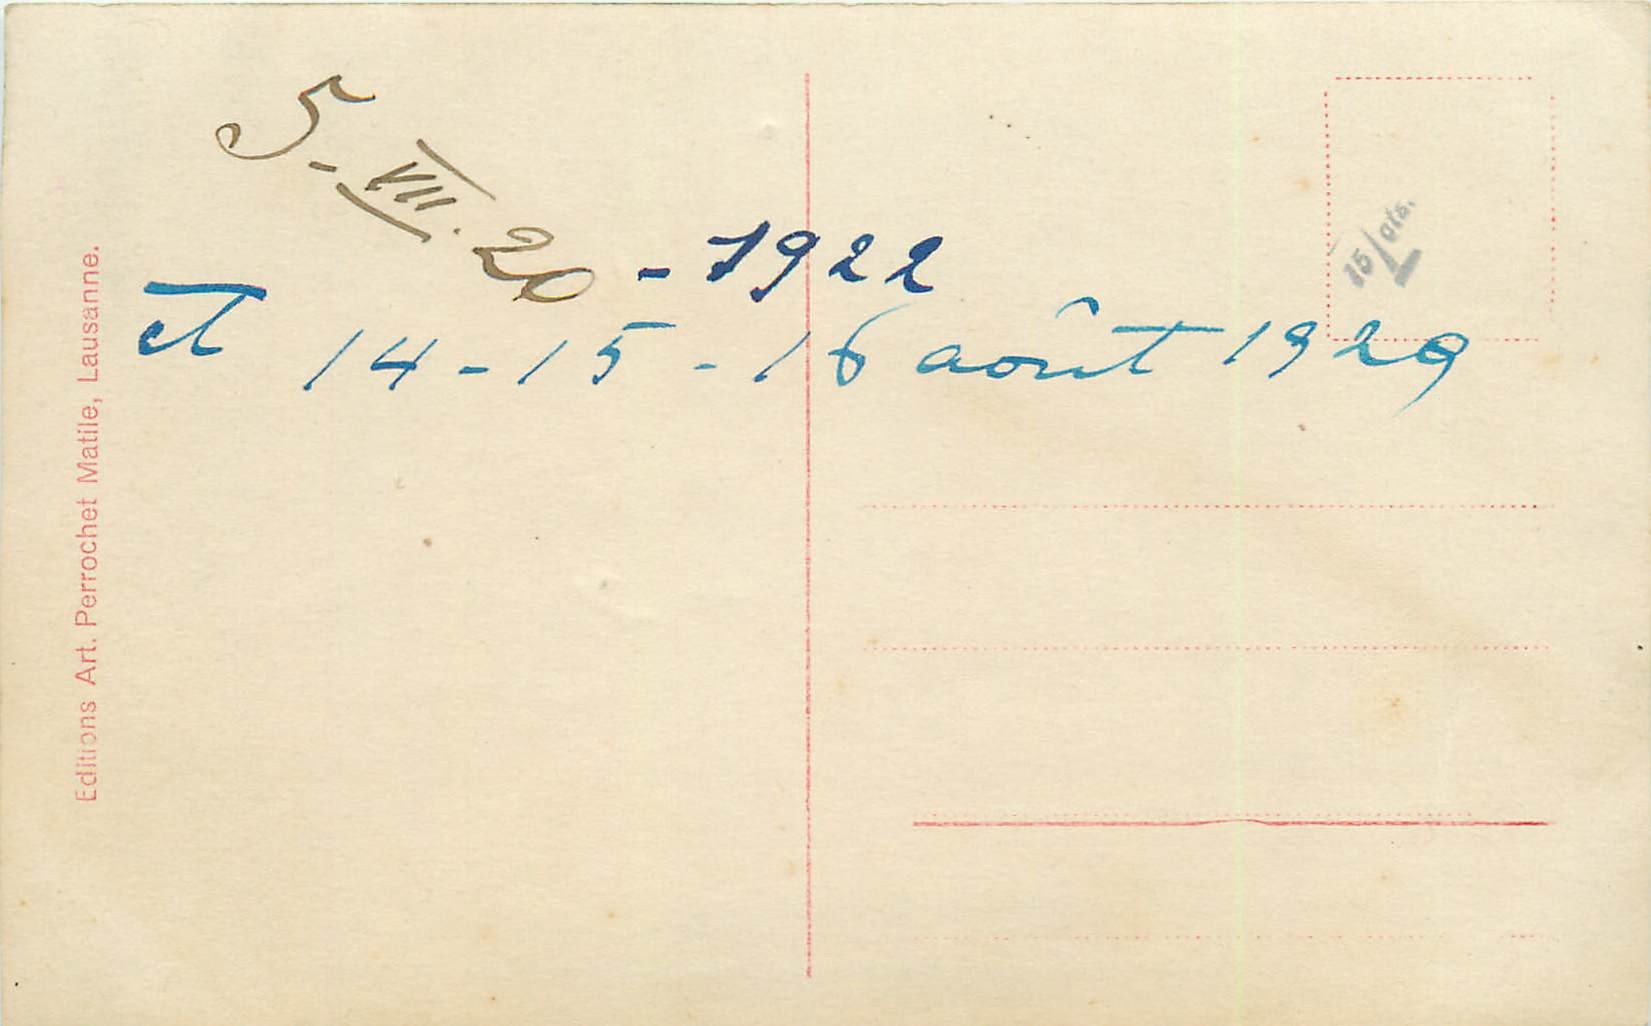 5-VII.20 - 1922
et 14-15-16 août 1929
Editions Art. Perrochet Matile, Lausanne.